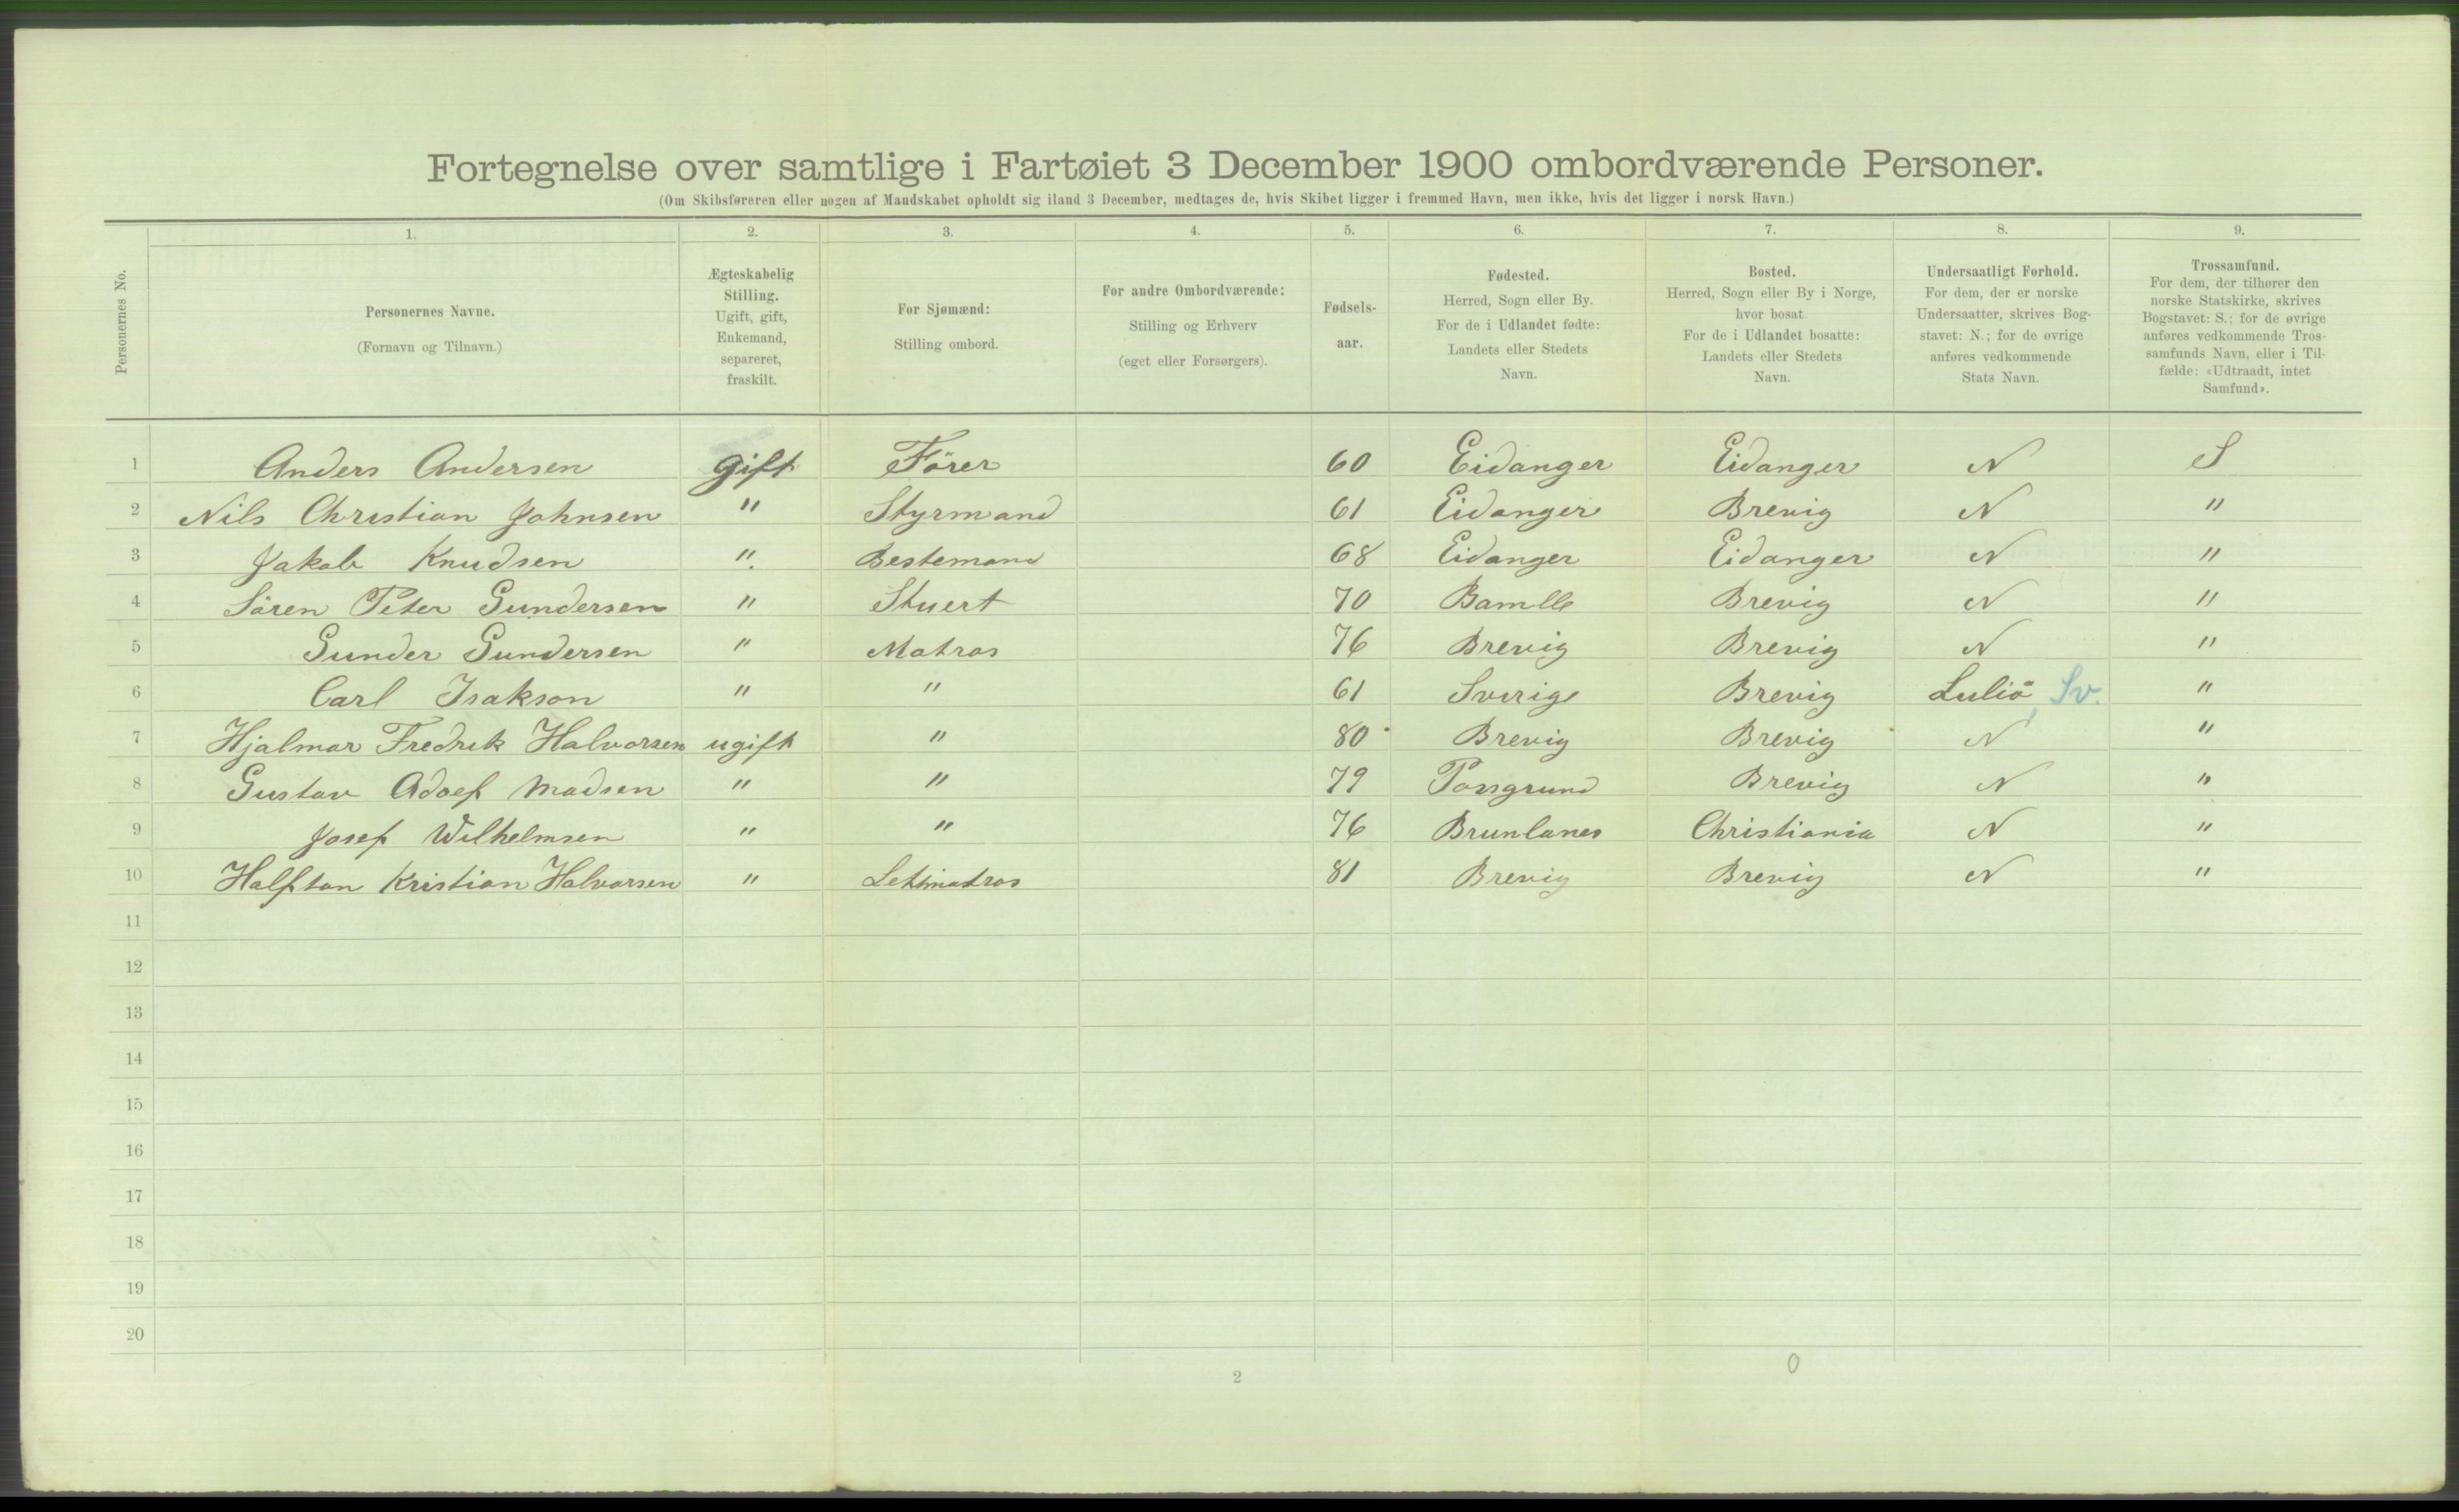 Fortegnelse over samtlige i Fartøiet 3 December 1900 ombordværende Personer.
(Om Skibsføreren eller nogen af Mandskabet opholdt sig iland 3 December, medtages de, hvis Skibet ligger i fremmed Havn, men ikke, hvis det ligger i norsk Havn.)
Personernes No.
1. 2. 3. 4. 5. 6. 7. 8. 9.
Personernes Navne.
(Fornavn og Tilnavn.)
Ægteskabelig
Stilling.
Ugift, gift,
Enkemand,
separeret,
fraskilt.
For Sjømænd:
Stilling ombord.
For andre Ombordværende:
Stilling og Erhverv
(eget eller Forsørgers).
Fødsels-
aar.
Fødested.
Herred, Sogn eller By.
For de i Udlandet fødte:
Landets eller Stedets
Navn.
Bosted.
Herred, Sogn eller By i Norge,
hvor bosat.
For de i Udlandet bosatte:
Landets eller Stedets
Navn.
Undersaatligt Forhold.
For dem, der er norske
Undersaatter, skrives Bog-
stavet: N.; for de øvrige
anføres vedkommende
Stats Navn.
Trossamfund.
For dem, der tilhører den
norske Statskirke, skrives
Bogstavet: S.; for de øvrige
anføres vedkommende Tros-
samfunds Navn, eller i Til-
fælde: «Udtraadt, intet
Samfund».
1 Anders Andersen gift Förer 60 Eidanger Eidanger N S
2 Nils Christian Johnsen " Styrmand 61 Eidanger Brevig N "
3 Jakob Knudsen " Bestemand 68 Eidanger Eidanger N "
4 Sören Peter Gundersen " Stuert 70 Bamlle Brevig N "
5 Gunder Gundersen " Matros 76 Brevig Brevig N "
6 Carl Isakson " " 61 Sverige Brevig Luliö Sv. "
7 Hjalmar Fredrik Halvorsen ugift " 80 Brevig Brevig N "
8 Gustav Adolf Madsen " " 79 Porsgrund Brevig N "
9 Josef Wilhelmsen " " 76 Brunlanes Christiania N "
10 Halftan Kristian Halvorsen " Letmatros 81 Brevig Brevig N "
11
12
13
14
15
16
17
18
19
20
2
0